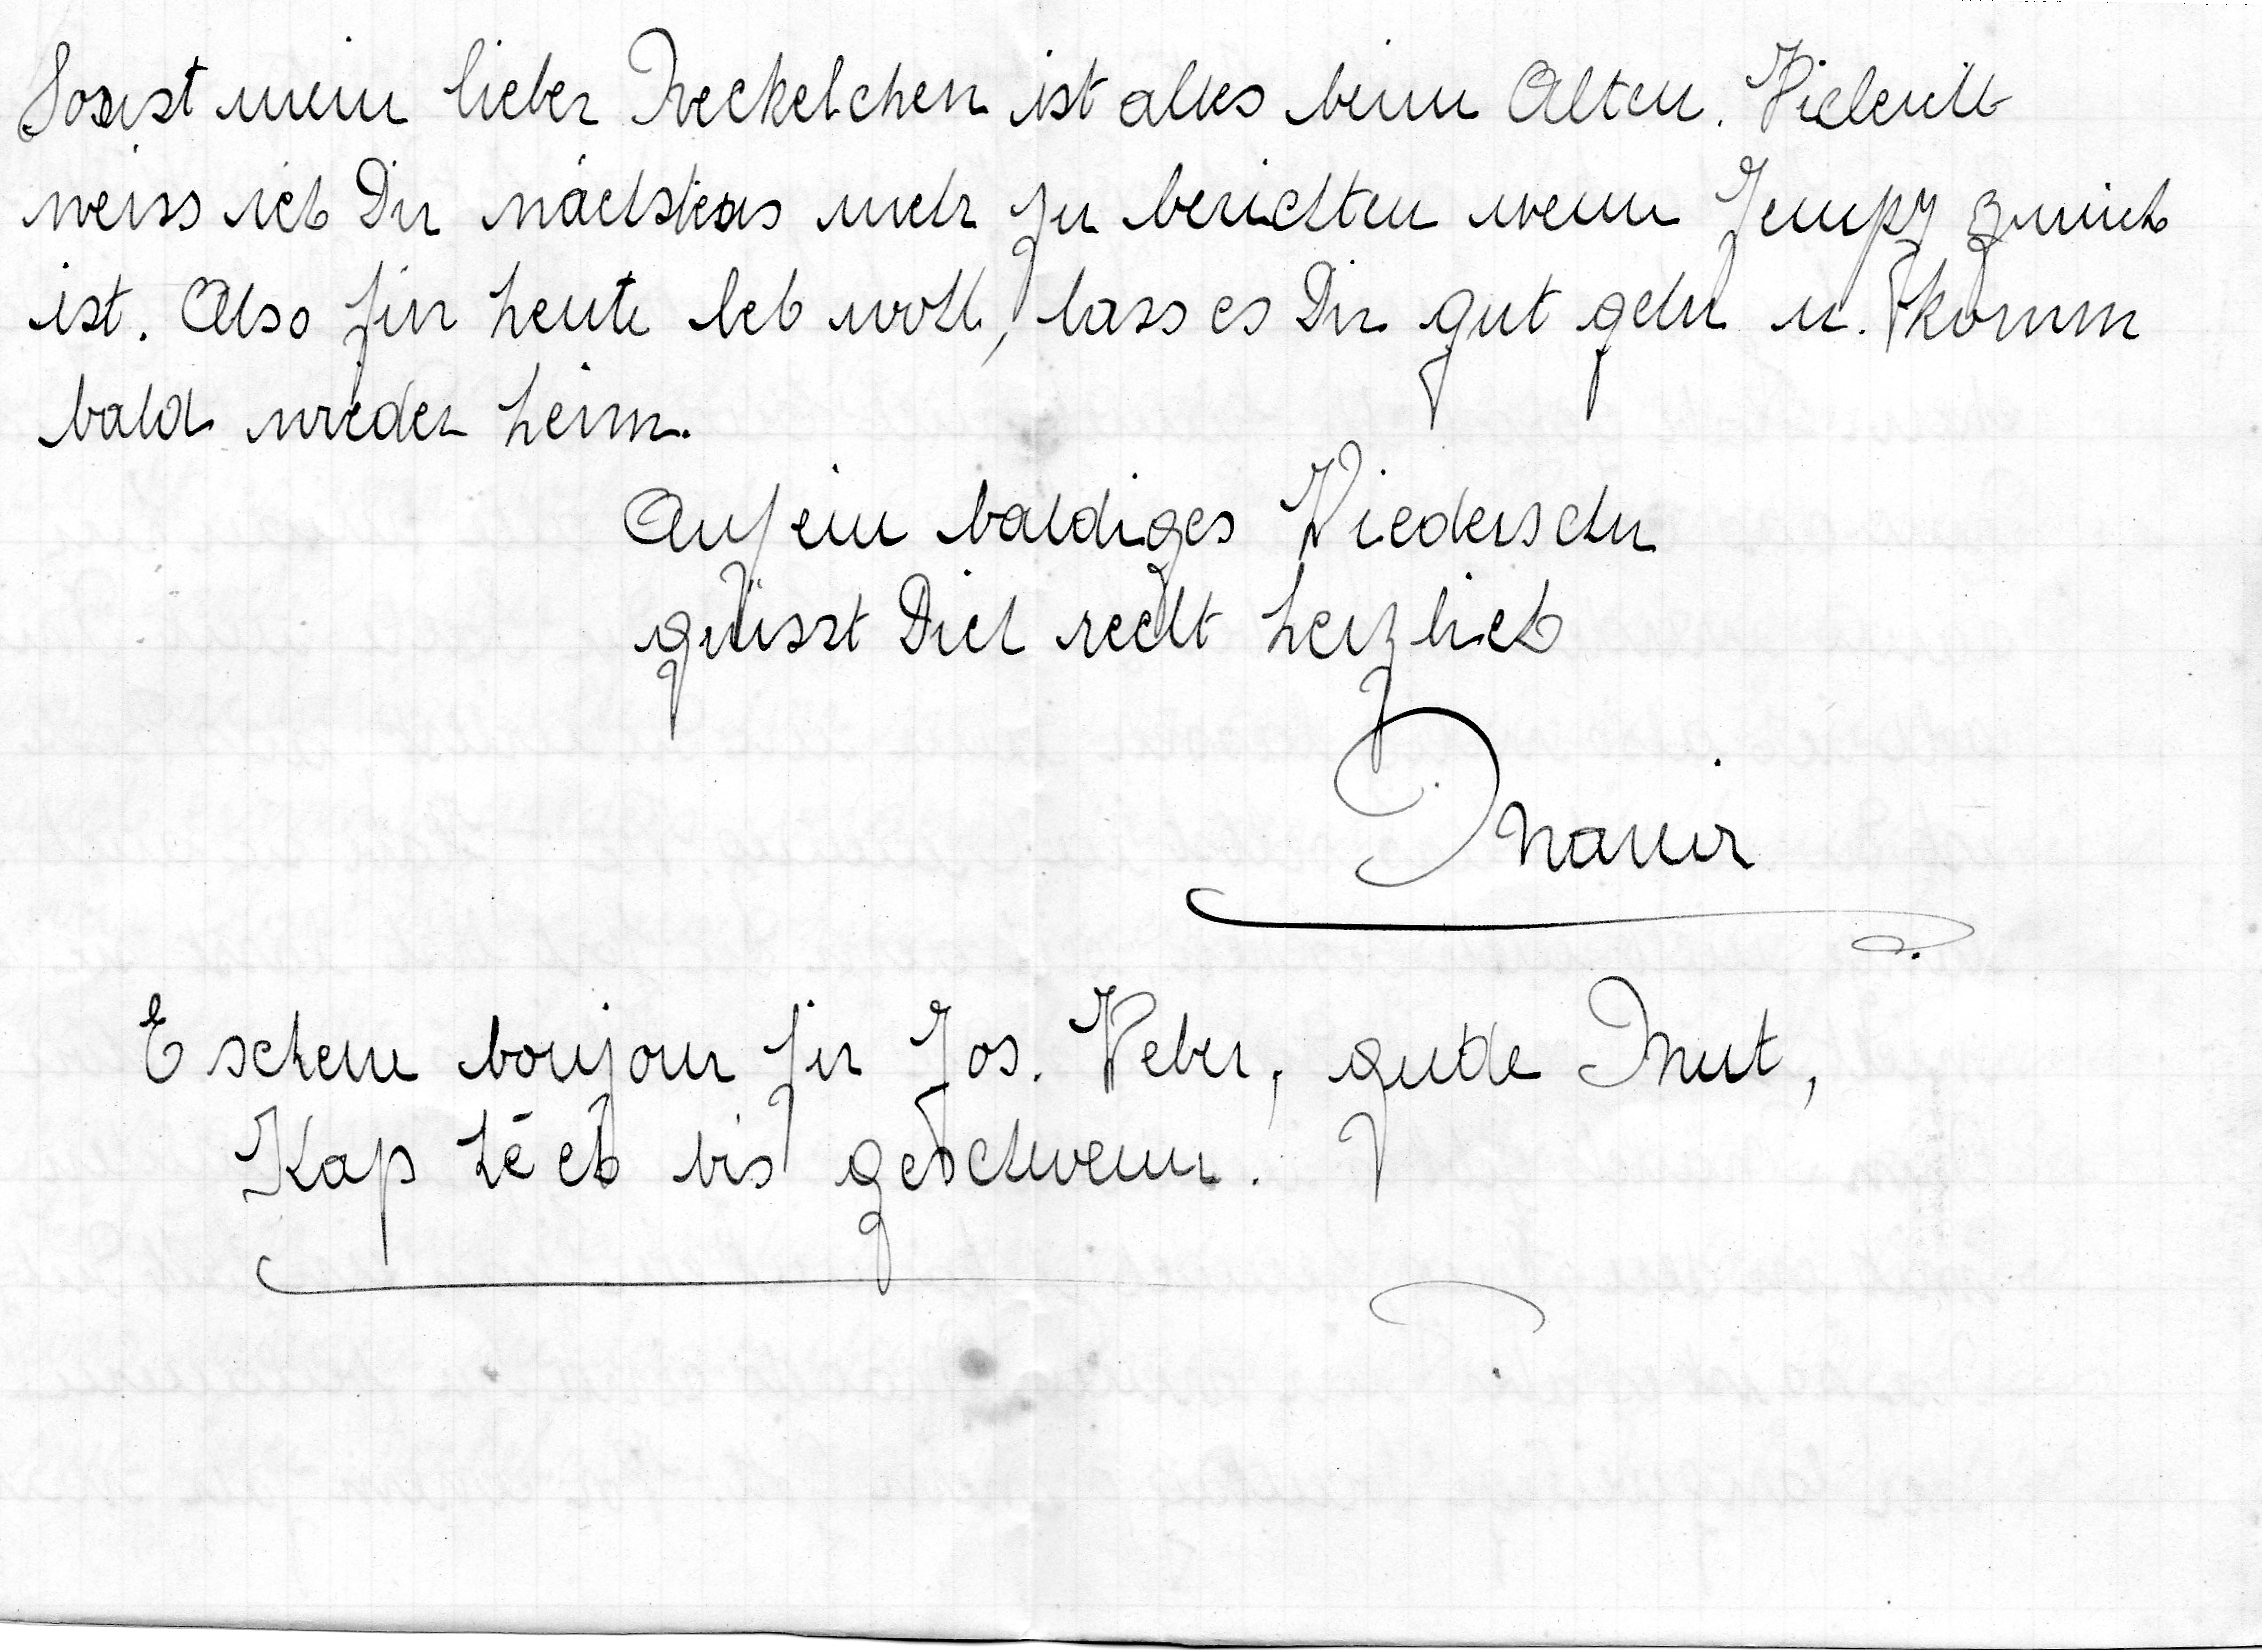 Sonst mein lieber Neckelchen ist alles beim Alten. Vieleich
weiss ich Dir nächstens mehr zu berichten wenn Jempy zurück
ist. Also für heute leb wohl, lass es Dir gut gehn u. komm
bald wieder heim.
Auf ein baldiges Wiedersehn
grüsst Dich recht herzlich
E schene bonjour fir Jos. Weber, gudde Mut,
Kap héch bis geschwenn.